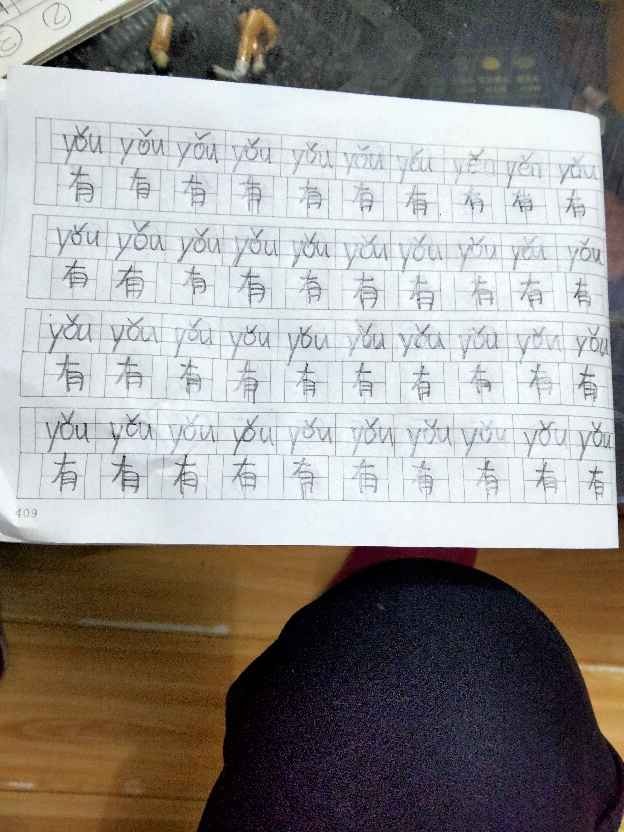 yǒu yǒu yǒu yǒu yǒu yǒu yǒu yěn yěn yǒu
有 有 有 有 有 有 有 有 有 有
yǒu yǒu yǒu yǒu yǒu yǒu yǒu yǒu yǒu yǒu
有 有 有 有 有 有 有 有 有 有
yǒu yǒu yǒu yǒu yǒu yǒu yǒu yǒu yǒu yǒu
有 有 有 有 有 有 有 有 有 有
yǒu yǒu yǒu yǒu yǒu yǒu yǒu yǒu yǒu yǒu
有 有 有 有 有 有 有 有 有 有
409